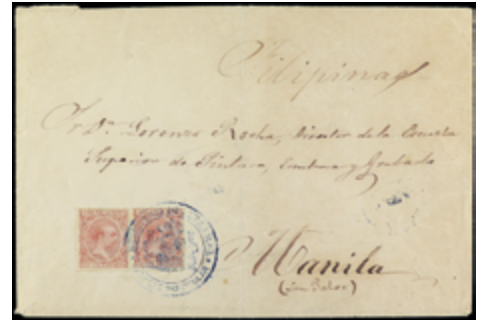 Filipinas
Sr. Dn. Lorenzo Rocha, Director de la Escuela
Superior de Pintura, Escultura y Grabado
Manila